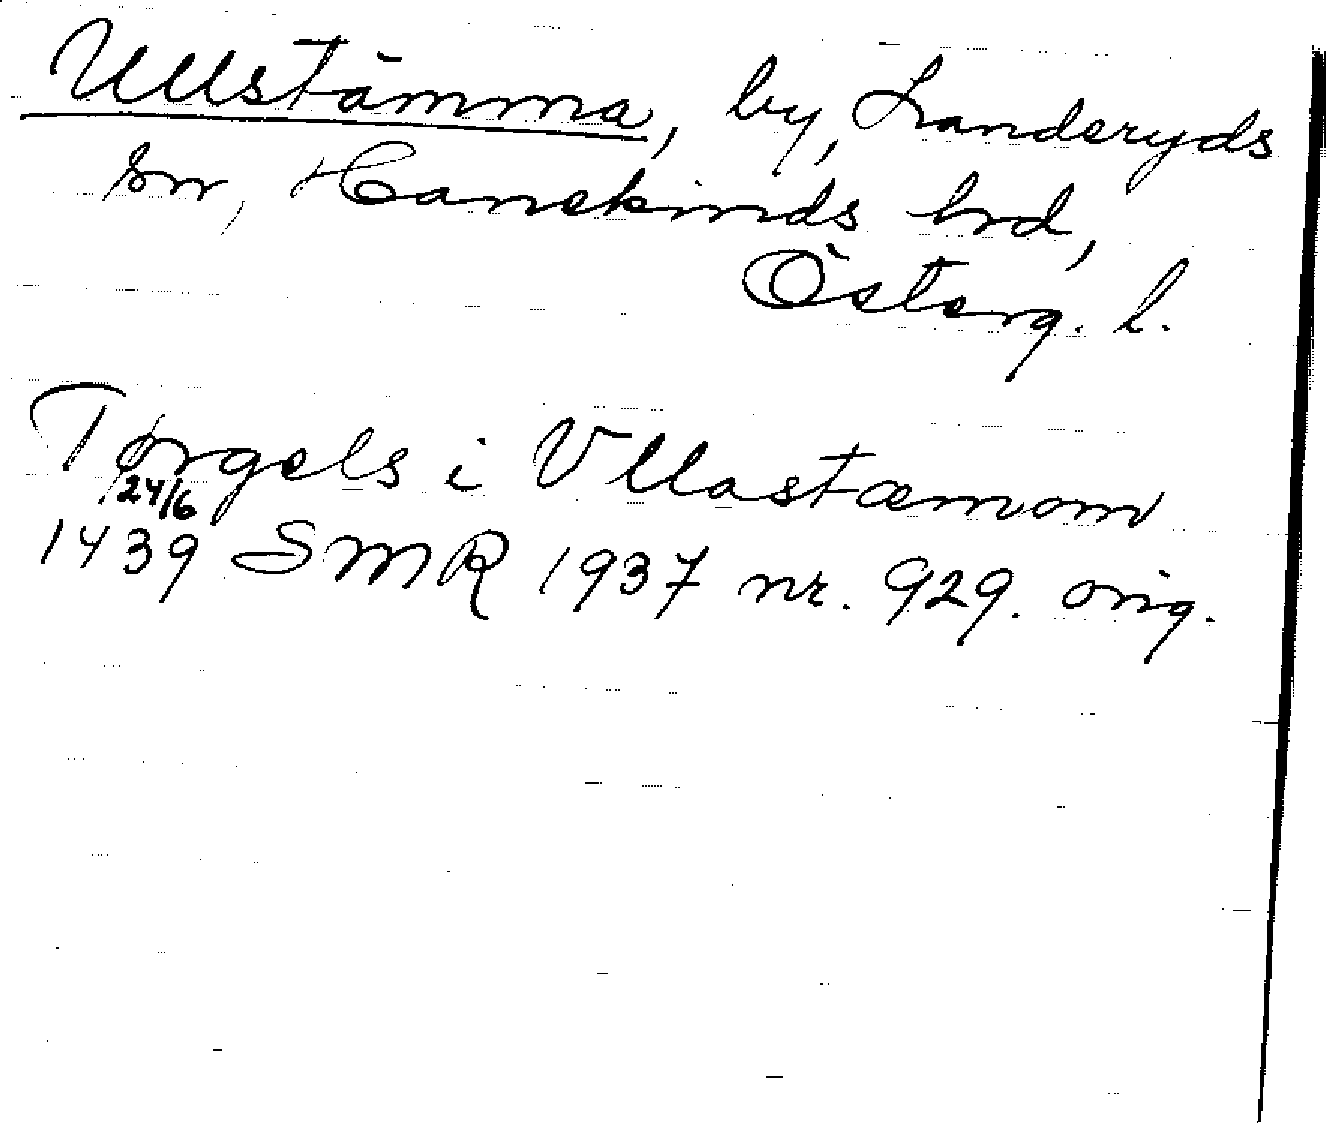 Ullstämma, by, Landeryds
sn, Hanekinds hrd,
Österg. l.
Tørgels i Vllastæmom
24/6
1439 SMR 1937 nr. 929. orig.